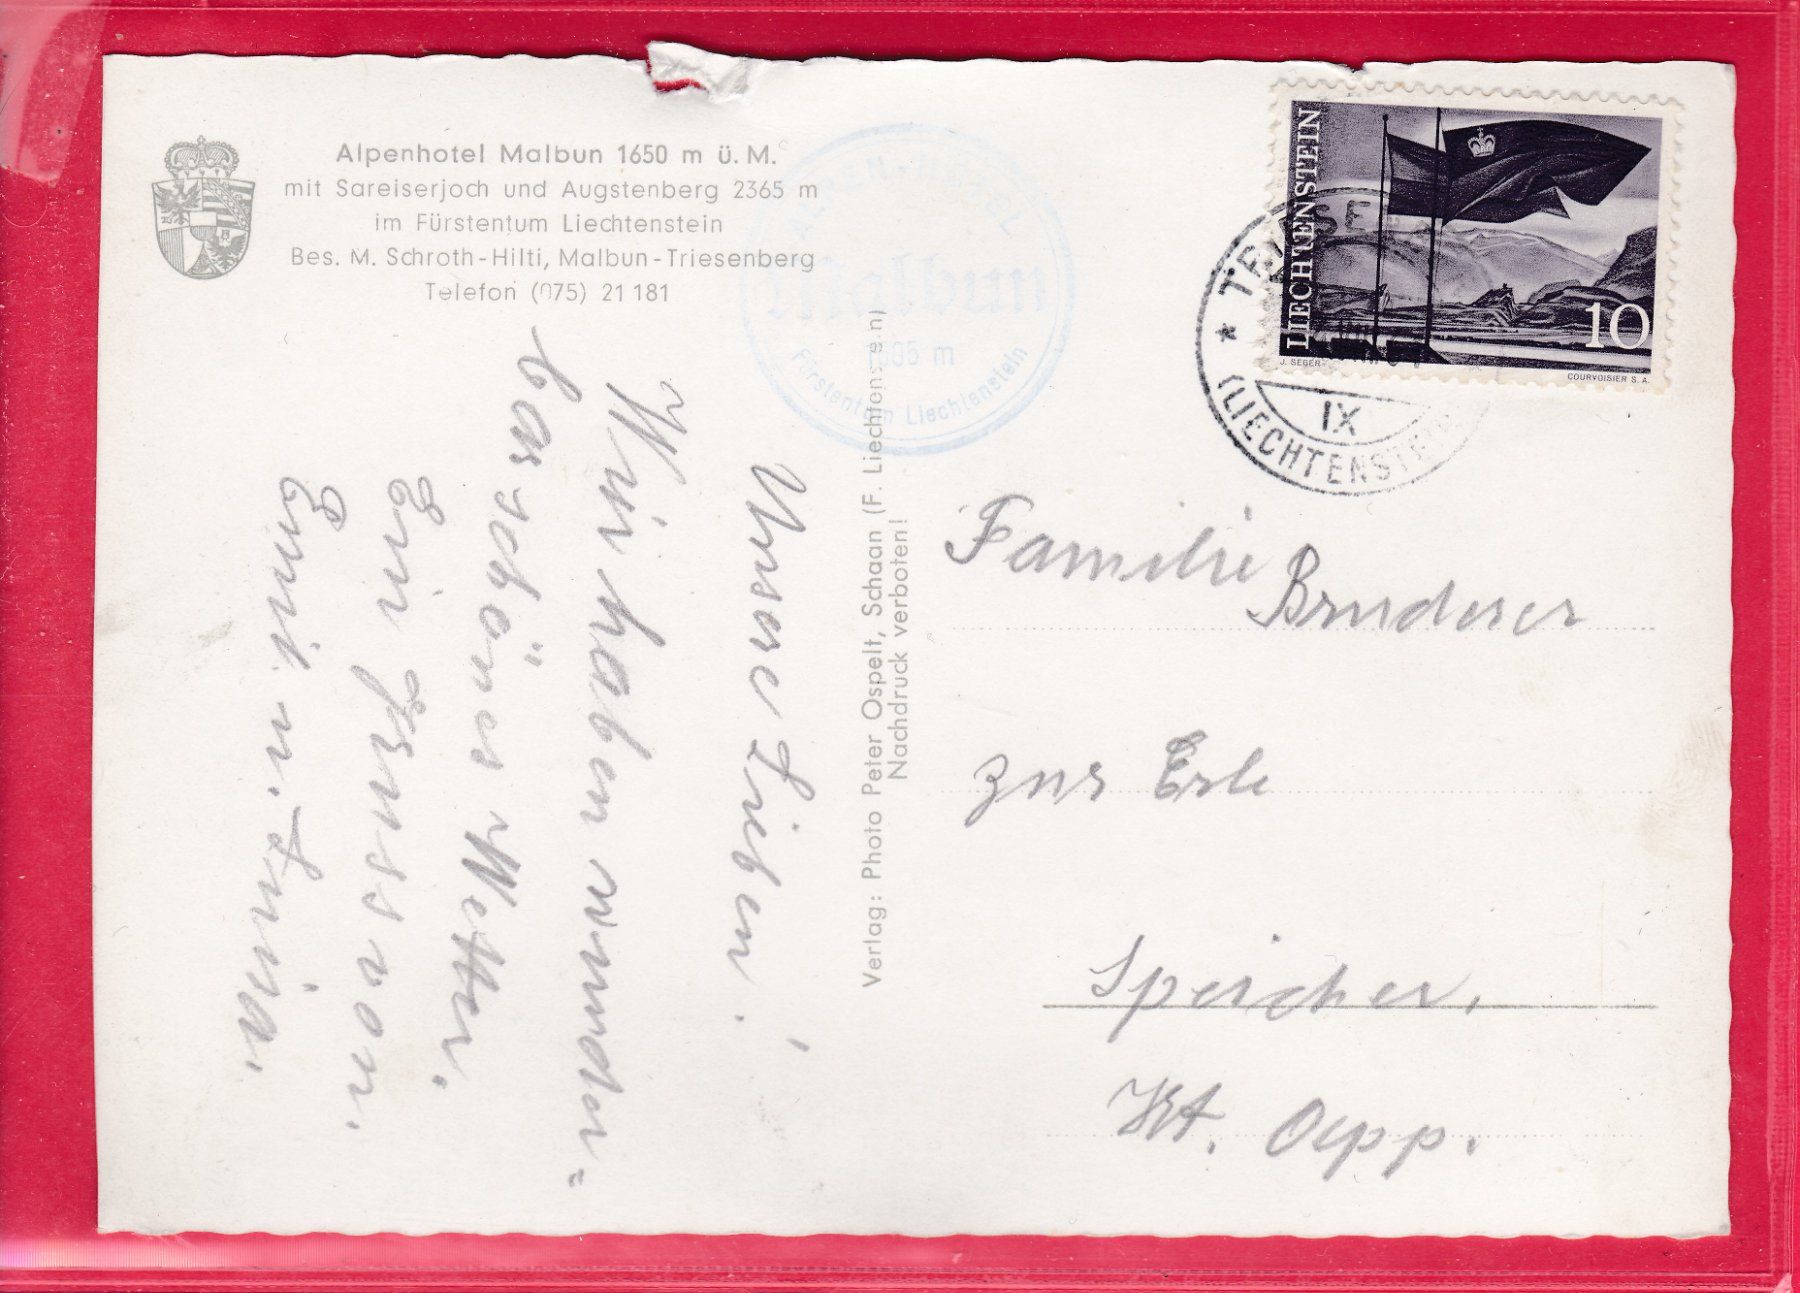 Alpenhotel Malbun 1650 m ü. M.
mit Sareiserjoch und Augstenberg 2365 m
im Fürstentum Liechtenstein
Bes. M. Schroth-Hilti, Malbun-Triesenberg
Telefon (075) 21 181
ALPEN-HOTEL
Malbun
m
Fürstentum Liechtenstein
LIECHTENSTEIN
10
J. SEGER
COURVOISIER S. A.
IX
(LIECHTENSTEIN
Unsere Lieben!
Wir haben wunder=
bar schönes Wetter.
Ein Gruss von
Emil u.
Verlag: Photo Peter Ospelt, Schaan (F. Liechtenstein)
Nachdruck verboten!
Familie Bruderer
zur Erle
Speicher,
Kt. App.